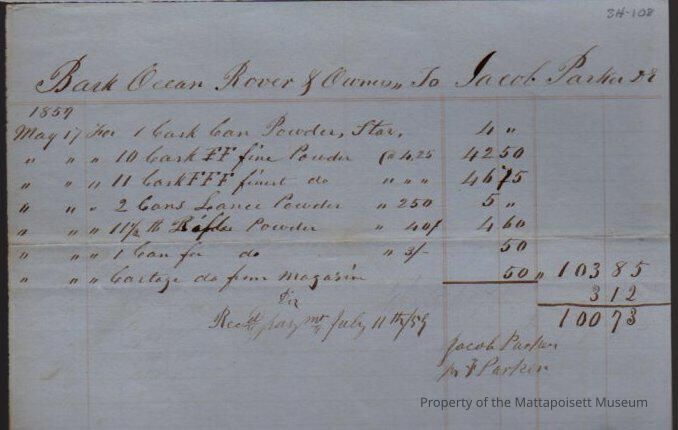 SH-108
Bark Ocean Rover & Owners To Jacob Parker Dr
1859
May 17 For 1 Cask Can Powder, Star, 4 "
" " " 10 Cask FF fine Powder @ 4.25 42 50
" " " 11 Cask FFF finest do " " " 46 75
" " " 2 Cans Lance Powder " 250 5 "
" " " 11½ lb Rifle Powder " 40/ 4 60
" " " 1 Can for do " 3/- 50
" " " Cartage do from Magazin 50 " 103 85
3 12
Recd paymt July 11th/59 100 73
Jacob Parker
pr F Parker
Property of the Mattapoisett Museum